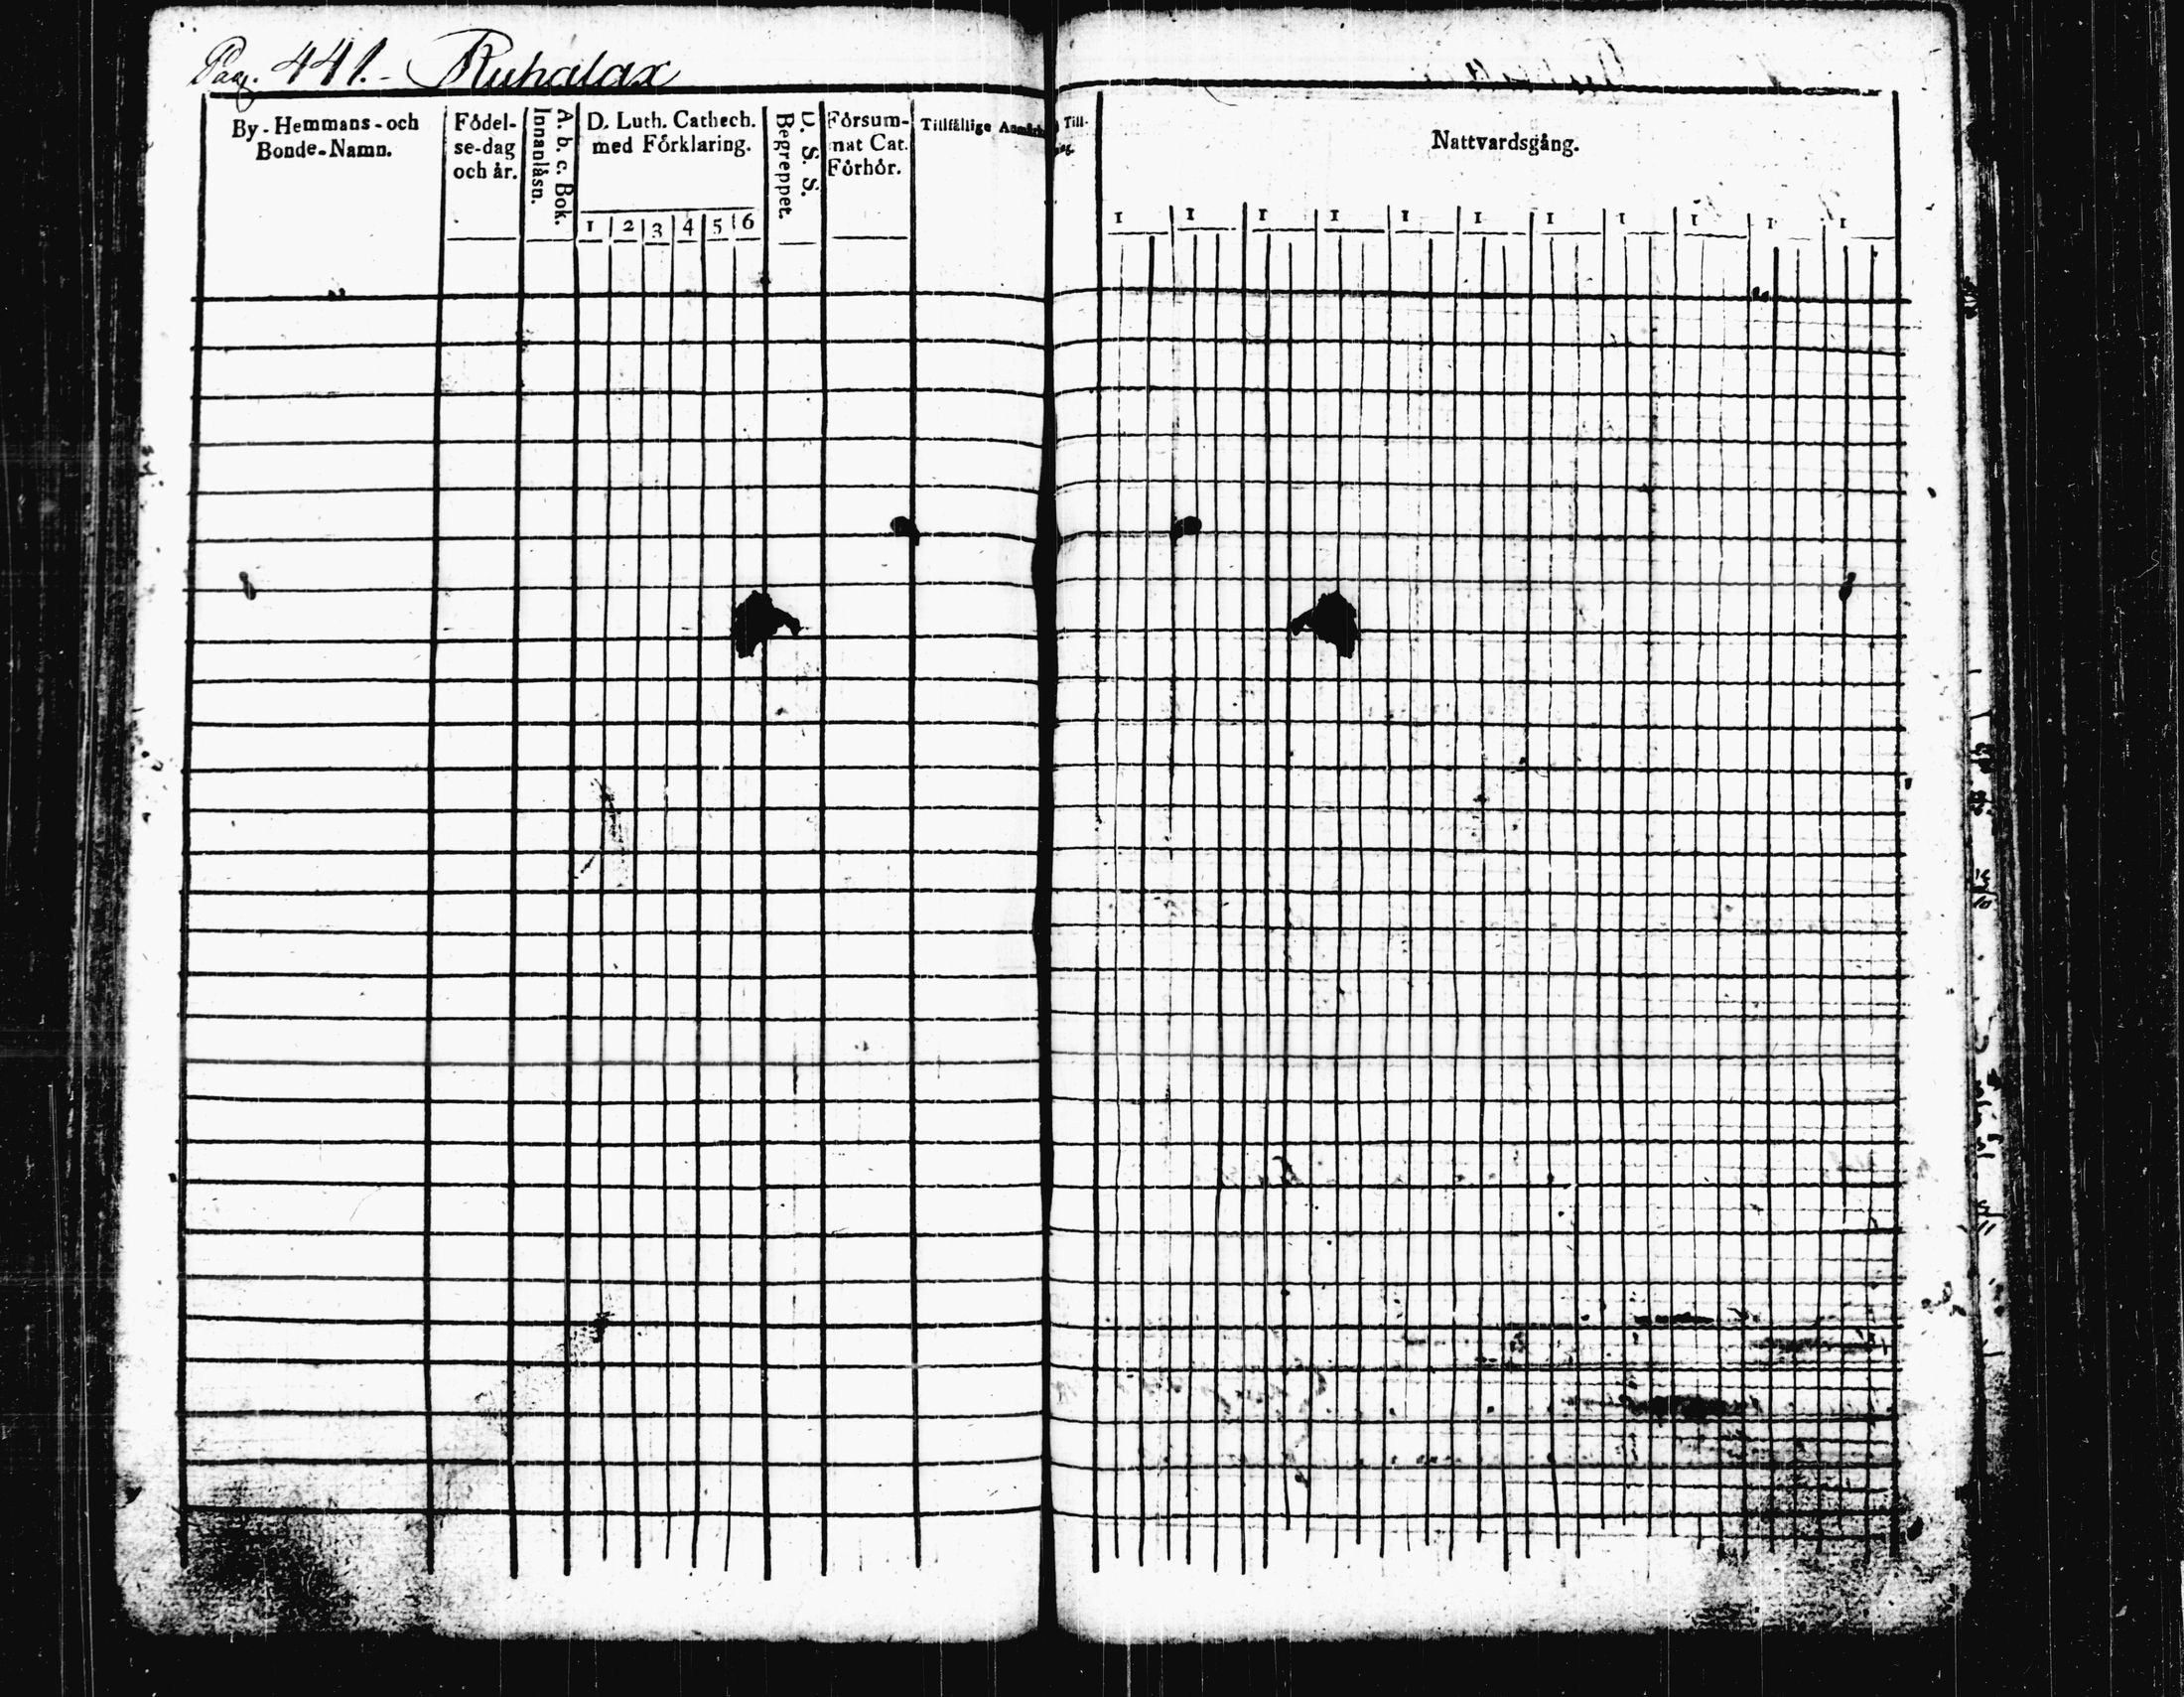 Pag. 441. - Ruhalax
By-Hemmans-och
Bonde-Namn.
Födel-
se-dag
och år.
A. b. c. Bok.
Innanläsn.
D. Luth. Cathech.
med Förklaring.
1 2 3 4 5 6
D. S. S.
Begreppet.
Försum-
nat Cat.
Förhör.
Tillfällige
Till-
Nattvardsgång.
1 1 1 1 1 1 1 1 1 1 1